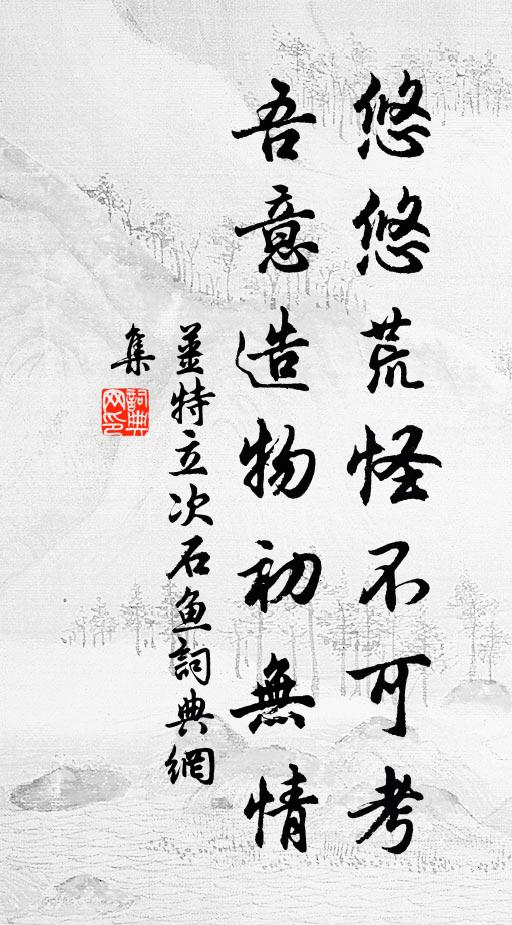 悠悠荒怪不可考
吾意造物初無情
姜特立次石魚詞典網
集
詞典網印